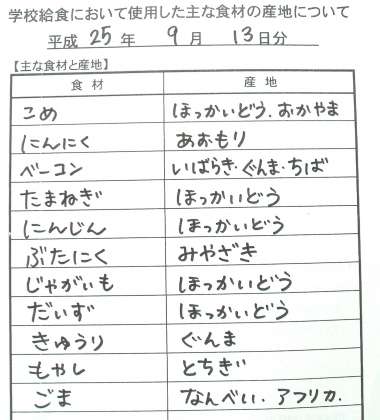 学校給食において使用した主な食材の産地について
平成 25 年 9 月 13 日分
【主な食材と産地】
食 材 産 地
こめ ほっかいどう.おかやま
にんにく あおもり
ベーコン いばらき・ぐんま・ちば
たまねぎ ほっかいどう
にんじん ほっかいどう
ぶたにく みやざき
じゃがいも ほっかいどう
だいず ほっかいどう
きゅうり ぐんま
もやし とちぎ
ごま なんべい.アフリカ.